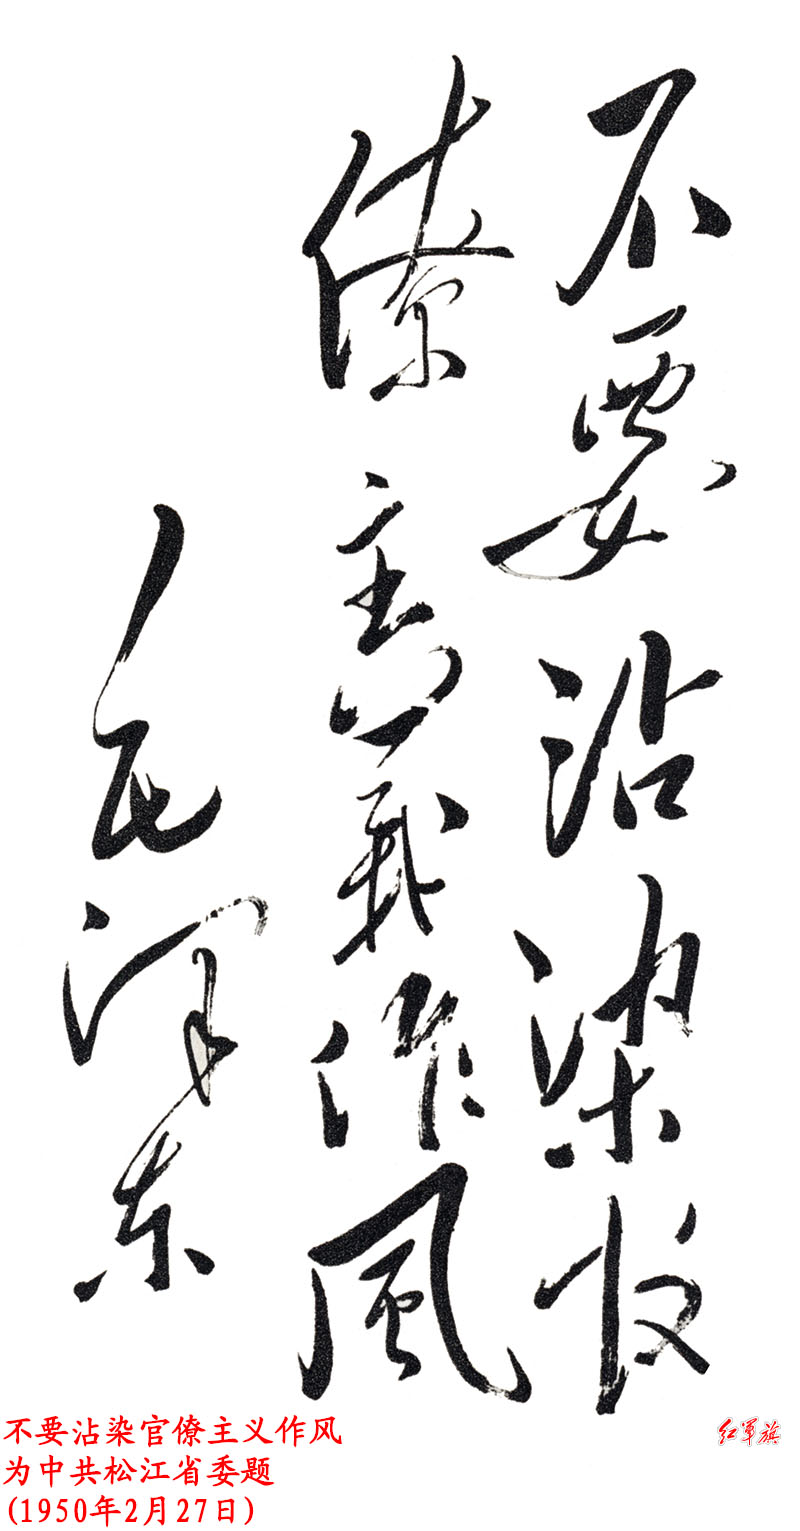 不要沾染官
僚主義作風
毛泽东
不要沾染官僚主义作风
为中共松江省委题
(1950年2月27日)
红军旗